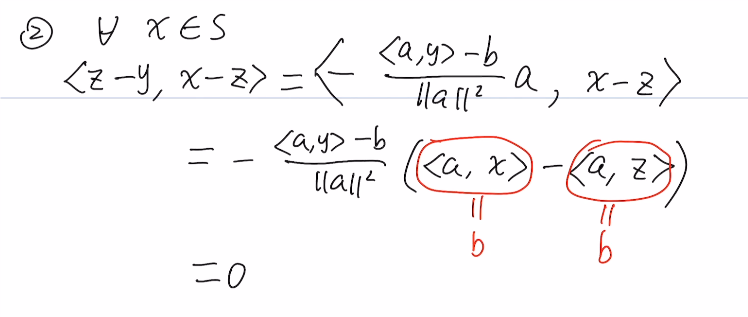 ② ∀ x ∈ S
<z-y, x-z> = <- (<a,y>-b)/||a||² a, x-z>
= - (<a,y>-b)/||a||² (<a, x> - <a, z>)
|| ||
b b
=0